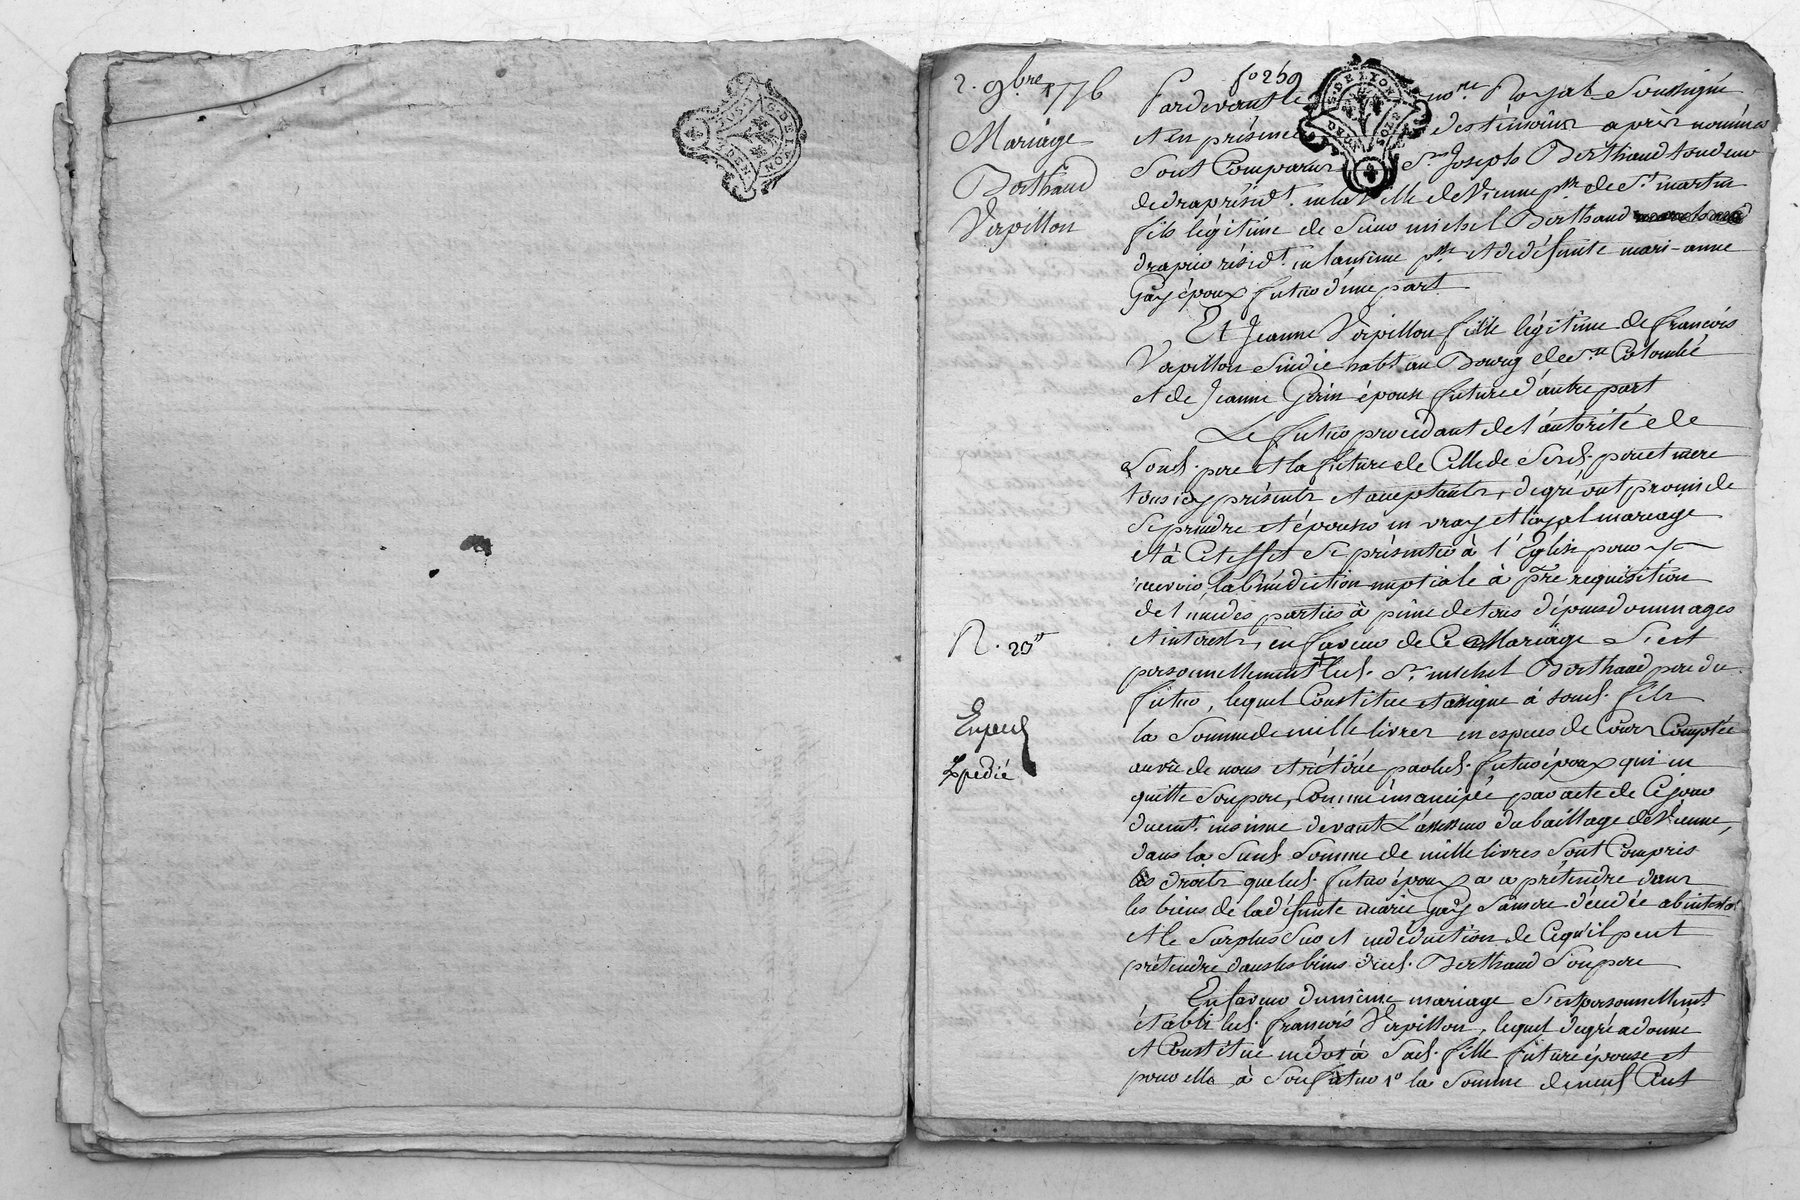 2. 9bre 1776
Mariage
Berthaud
Verpillon
R. 20tt
Expedié
fo 259
Pardevant le no.re Royal Soussigné
et en présence des témoins après nommés
Sont Comparus Sr Joseph Berthaud tondeur
de drap résidt. en la ville de Vienne psse de St martin
fils légitime de Sieur michel Berthaud
drapier résidt. en la même psse et de défunte mari-anne
Gay époux futur d'une part
Et Jeanne Verpillon fille légitime de françois
Verpillon Sindic habt. au Bourg de Ste Colombe
et de Jeanne Gerin épouse future d'autre part
Le futur procedant de l'autorité de
Sond. pere et la future de Celle de Sesd. pere et mere
tous icy présents et acceptants, de gré ont promis de
Se prendre et épouser en vray et loyal mariage
et à Cet effet Se présenter à l'Eglise pour y
recevoir la bénédiction nuptiale à pre requisition
de l'une des parties à peine de tous dépens dommages
et interests, en faveur de Ce Mariage S'est
personnellement led. Sr michel Berthaud pere du
futur, lequel Constitue et assigne à Sond. fils
la Somme de mille livres en especes de Cours Comptée
au vû de nous et rétirée par led. futur époux qui en
quitte Son pere, Comme émancipé par acte de Ce jour
duemt. insinué devant L'assesseur du bailliage de Vienne,
dans la Susd. Somme de mille livres Sont Compris
les droits que led. futur époux a a prétendre dans
les biens de la défunte marie Gay Sa mere décedée abintestat
et le Surplus Sur et en déduction de Ce qu'il peut
prétendre dans les biens dud. Berthaud Son pere
En faveur du même mariage S'est personnellemt.
établi led. françois Verpillon, lequel de gré a donné
et Constitué en dot à Sad. fille future épouse et
pour elle à Son futur 1o la Somme de neuf Cent